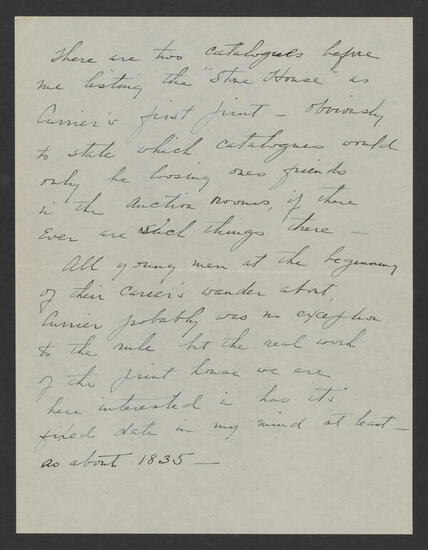 There are two catalogues before
me listing the "Stone House" as
Currier's first print — obviously
to state which catalogues would
only be loosing ones friends
in the auction rooms, if there
Ever are such things there —
All young men at the beginning
of their career's wander about,
Currier probably was no exception
to the rule but the real work
of the print house we are
here interested in has it's
fixed date in my mind at least —
as about 1835 —